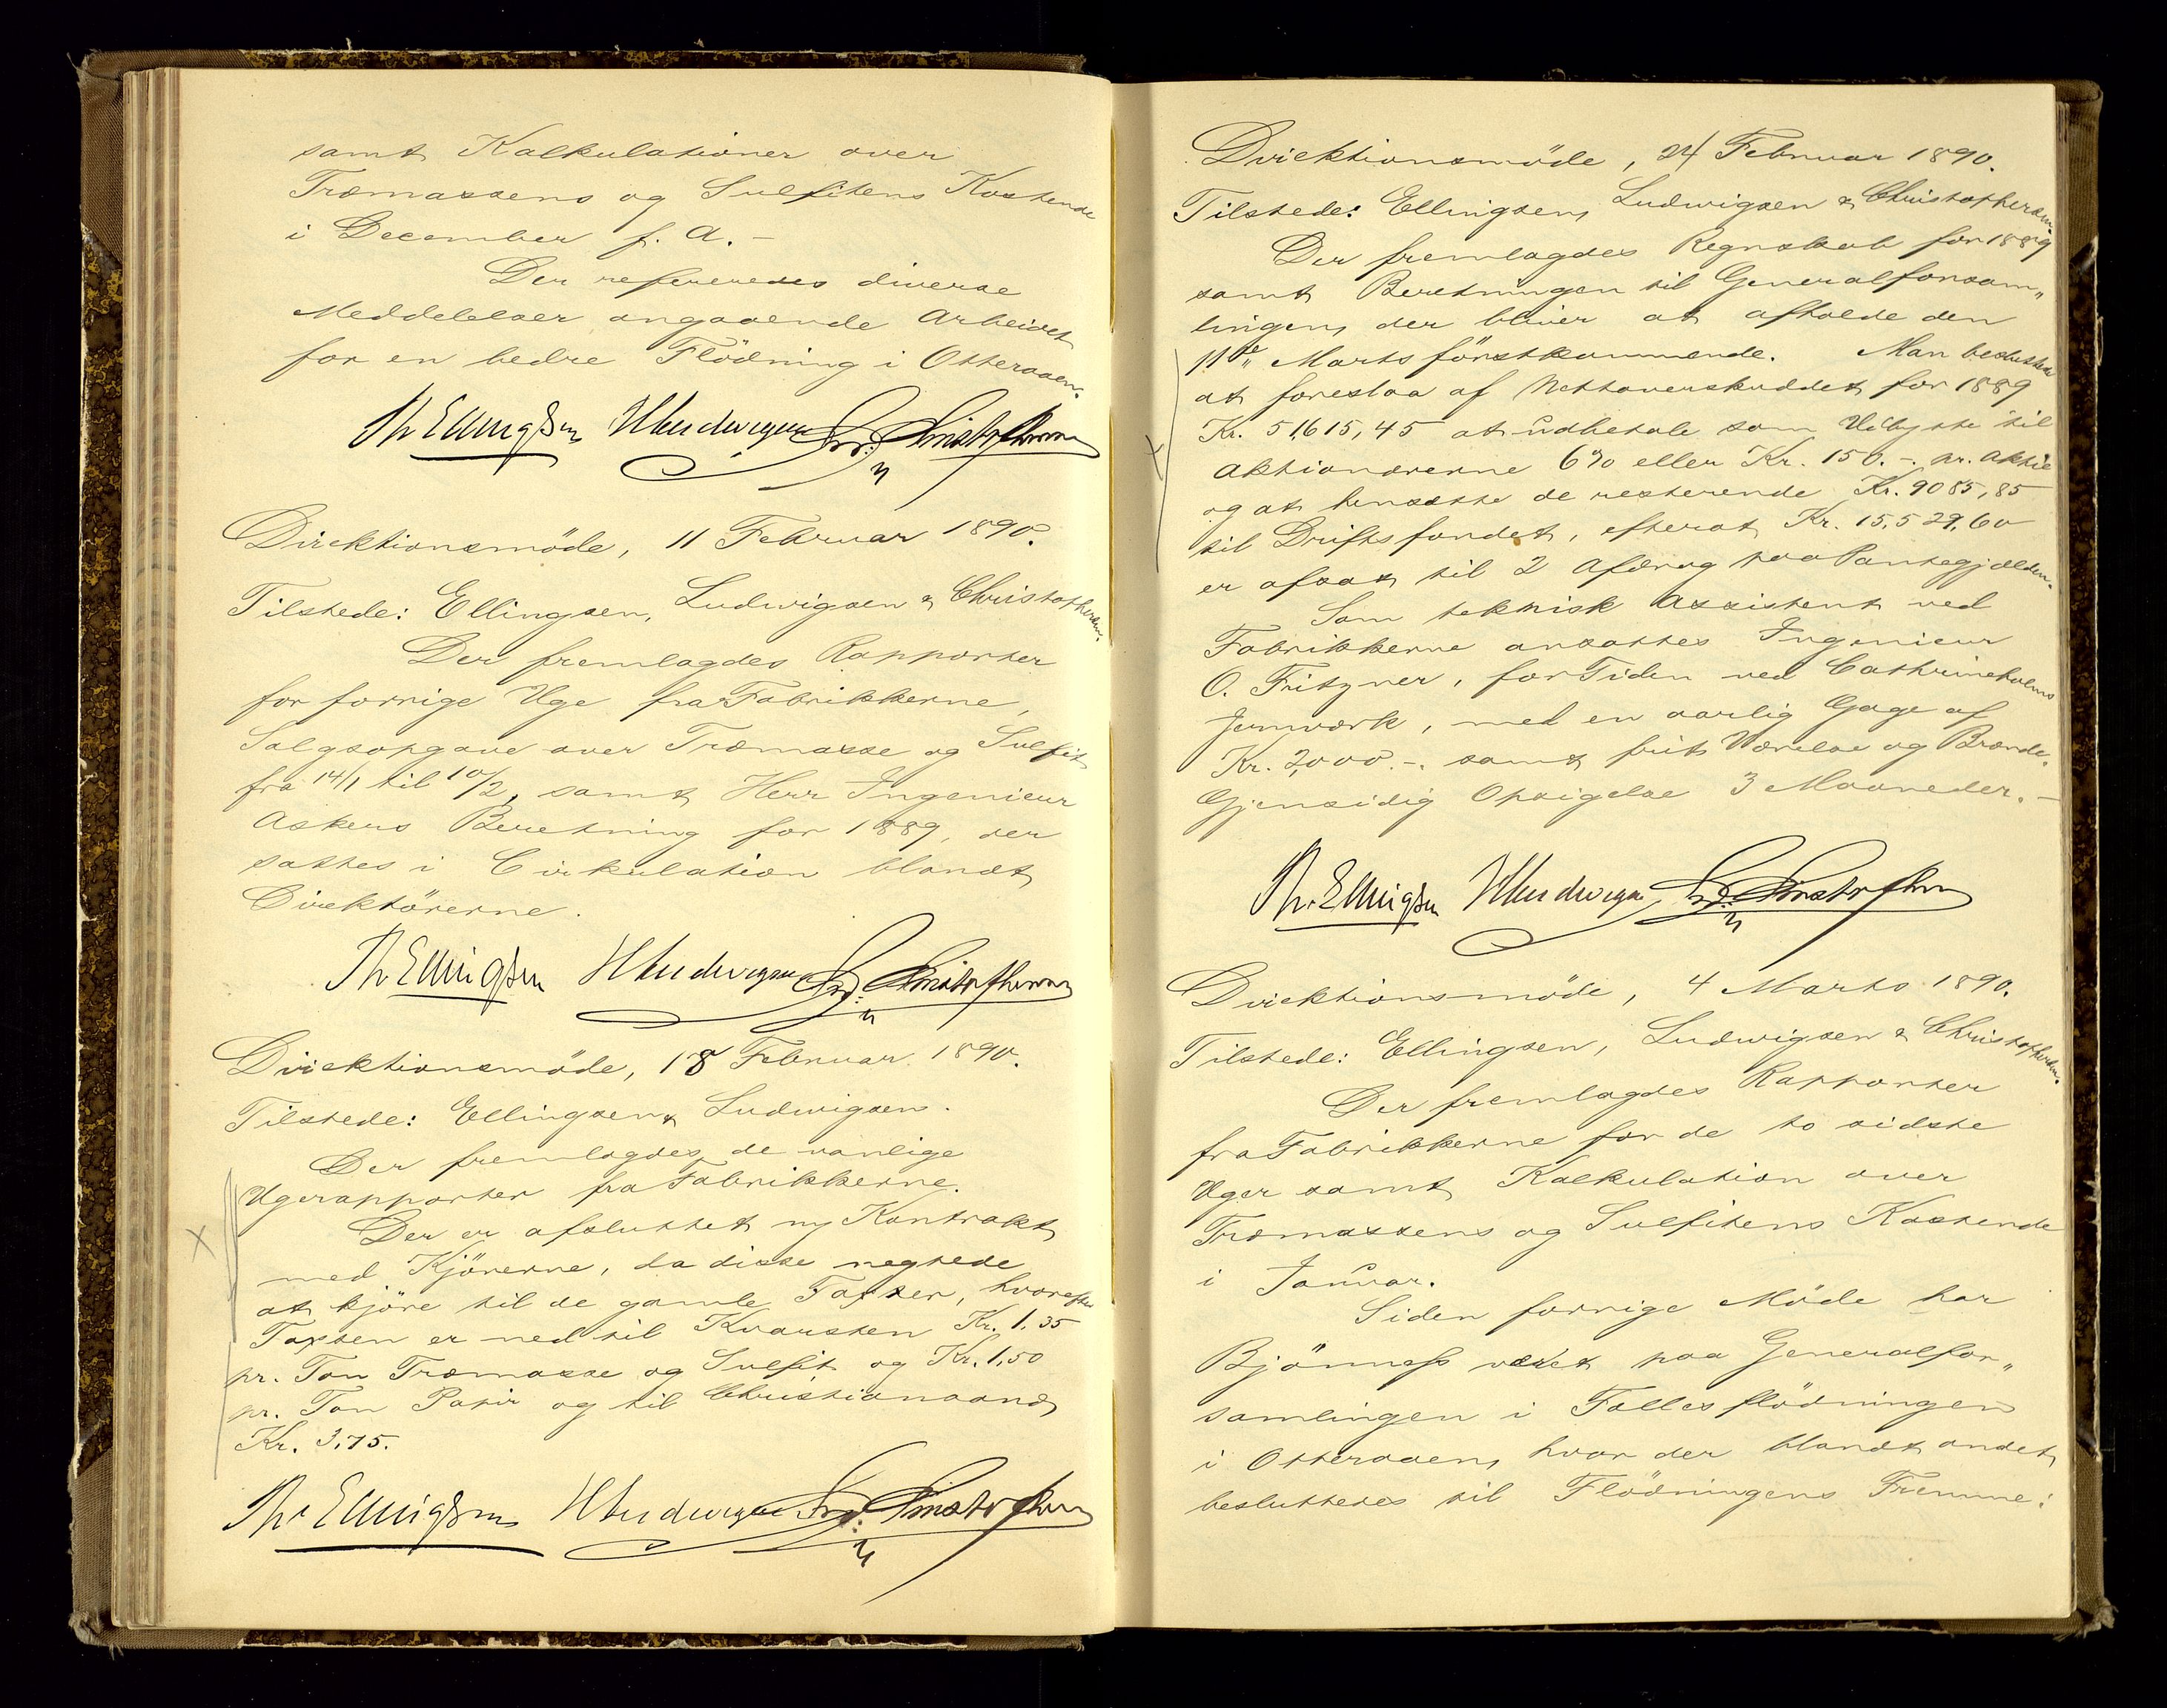 samt Kalkulationer over
Træmassens og Sulfitens Kostende
i December f. A. –
Der refereredes diverse
Meddelelser angaaende Arbeidet
for en bedre Flödning i Otteraaen.
Th Ellingsen HLudwigsen Chr. Christophersen
Direktionsmöde, 11 Februar 1890.
Tilstede: Ellingsen, Ludwigsen & Christophersen.
Der fremlagdes Rapporter
for forrige Uge fra Fabrikkerne,
Salgsopgave over Træmasse og Sulfit
fra 14/1 til 10/2, samt Herr Ingenieur
Askers Beretning for 1889, der
sattes i Cirkulation blandt
Direktörerne.
Th Ellingsen HLudwigsen Chr. Christophersen
Direktionsmöde, 18 Februar 1890.
Tilstede: Ellingsen & Ludwigsen.
Der fremlagdes de vanlige
Ugerapporter fra Fabrikkerne.
Der er afsluttet ny Kontrakt
med Kjörerne, da disse negtede
at kjöre til de gamle Taxter, hvorefter
Taxten er ned til Kvarsten Kr. 1.35
pr. Ton Træmasse og Sulfit og Kr. 1,50
pr. Ton Papir og til Christianssand
Kr. 3,75.
Th. Ellingsen HLudwigsen Chr. Christophersen
Direktionsmöde, 24 Februar 1890.
Tilstede: Ellingsen, Ludwigsen & Christophersen.
Der fremlagdes Regnskab for 1889
samt Beretningen til Generalforsam„
lingen, der bliver at afholde den
11te Marts förstkommende. Man besluttede
at foreslaa af Nettooverskuddet for 1889
Kr. 51,615,45 at udbetale som Udbytte til
Aktionærerne 6% eller Kr. 150.–. pr. Aktie
og at hensætte de resterende Kr. 9085,85
til Driftsfondet, efterat Kr. 15,529,60
er afsat til 2 Afdrag paa Pantegjælden.
Som teknisk Assistent ved
Fabrikkerne ansattes Ingenieur
O. Fritzner, for Tiden ved Cathrineholms
Jernværk, med en aarlig Gage af
Kr. 2,000.–. samt frit Værelse og Brænde.
Gjensidig Opsigelse 3 Maaneder. –
Th. Ellingsen HLudwigsen Chr. Christophersen
Direktionsmöde, 4 Marts 1890.
Tilstede: Ellingsen, Ludwigsen & Christophersen.
Der fremlagdes Rapporter
fra Fabrikkerne for de to sidste
Uger samt Kalkulation over
Træmassens og Sulfitens Kostende
i Januar.
Siden forrige Möde har
Björness været paa Generalfor„
samlingen i Fællesflödningen
i Otteraaen, hvor der blandt andet
besluttedes til Flödningens Fremme: